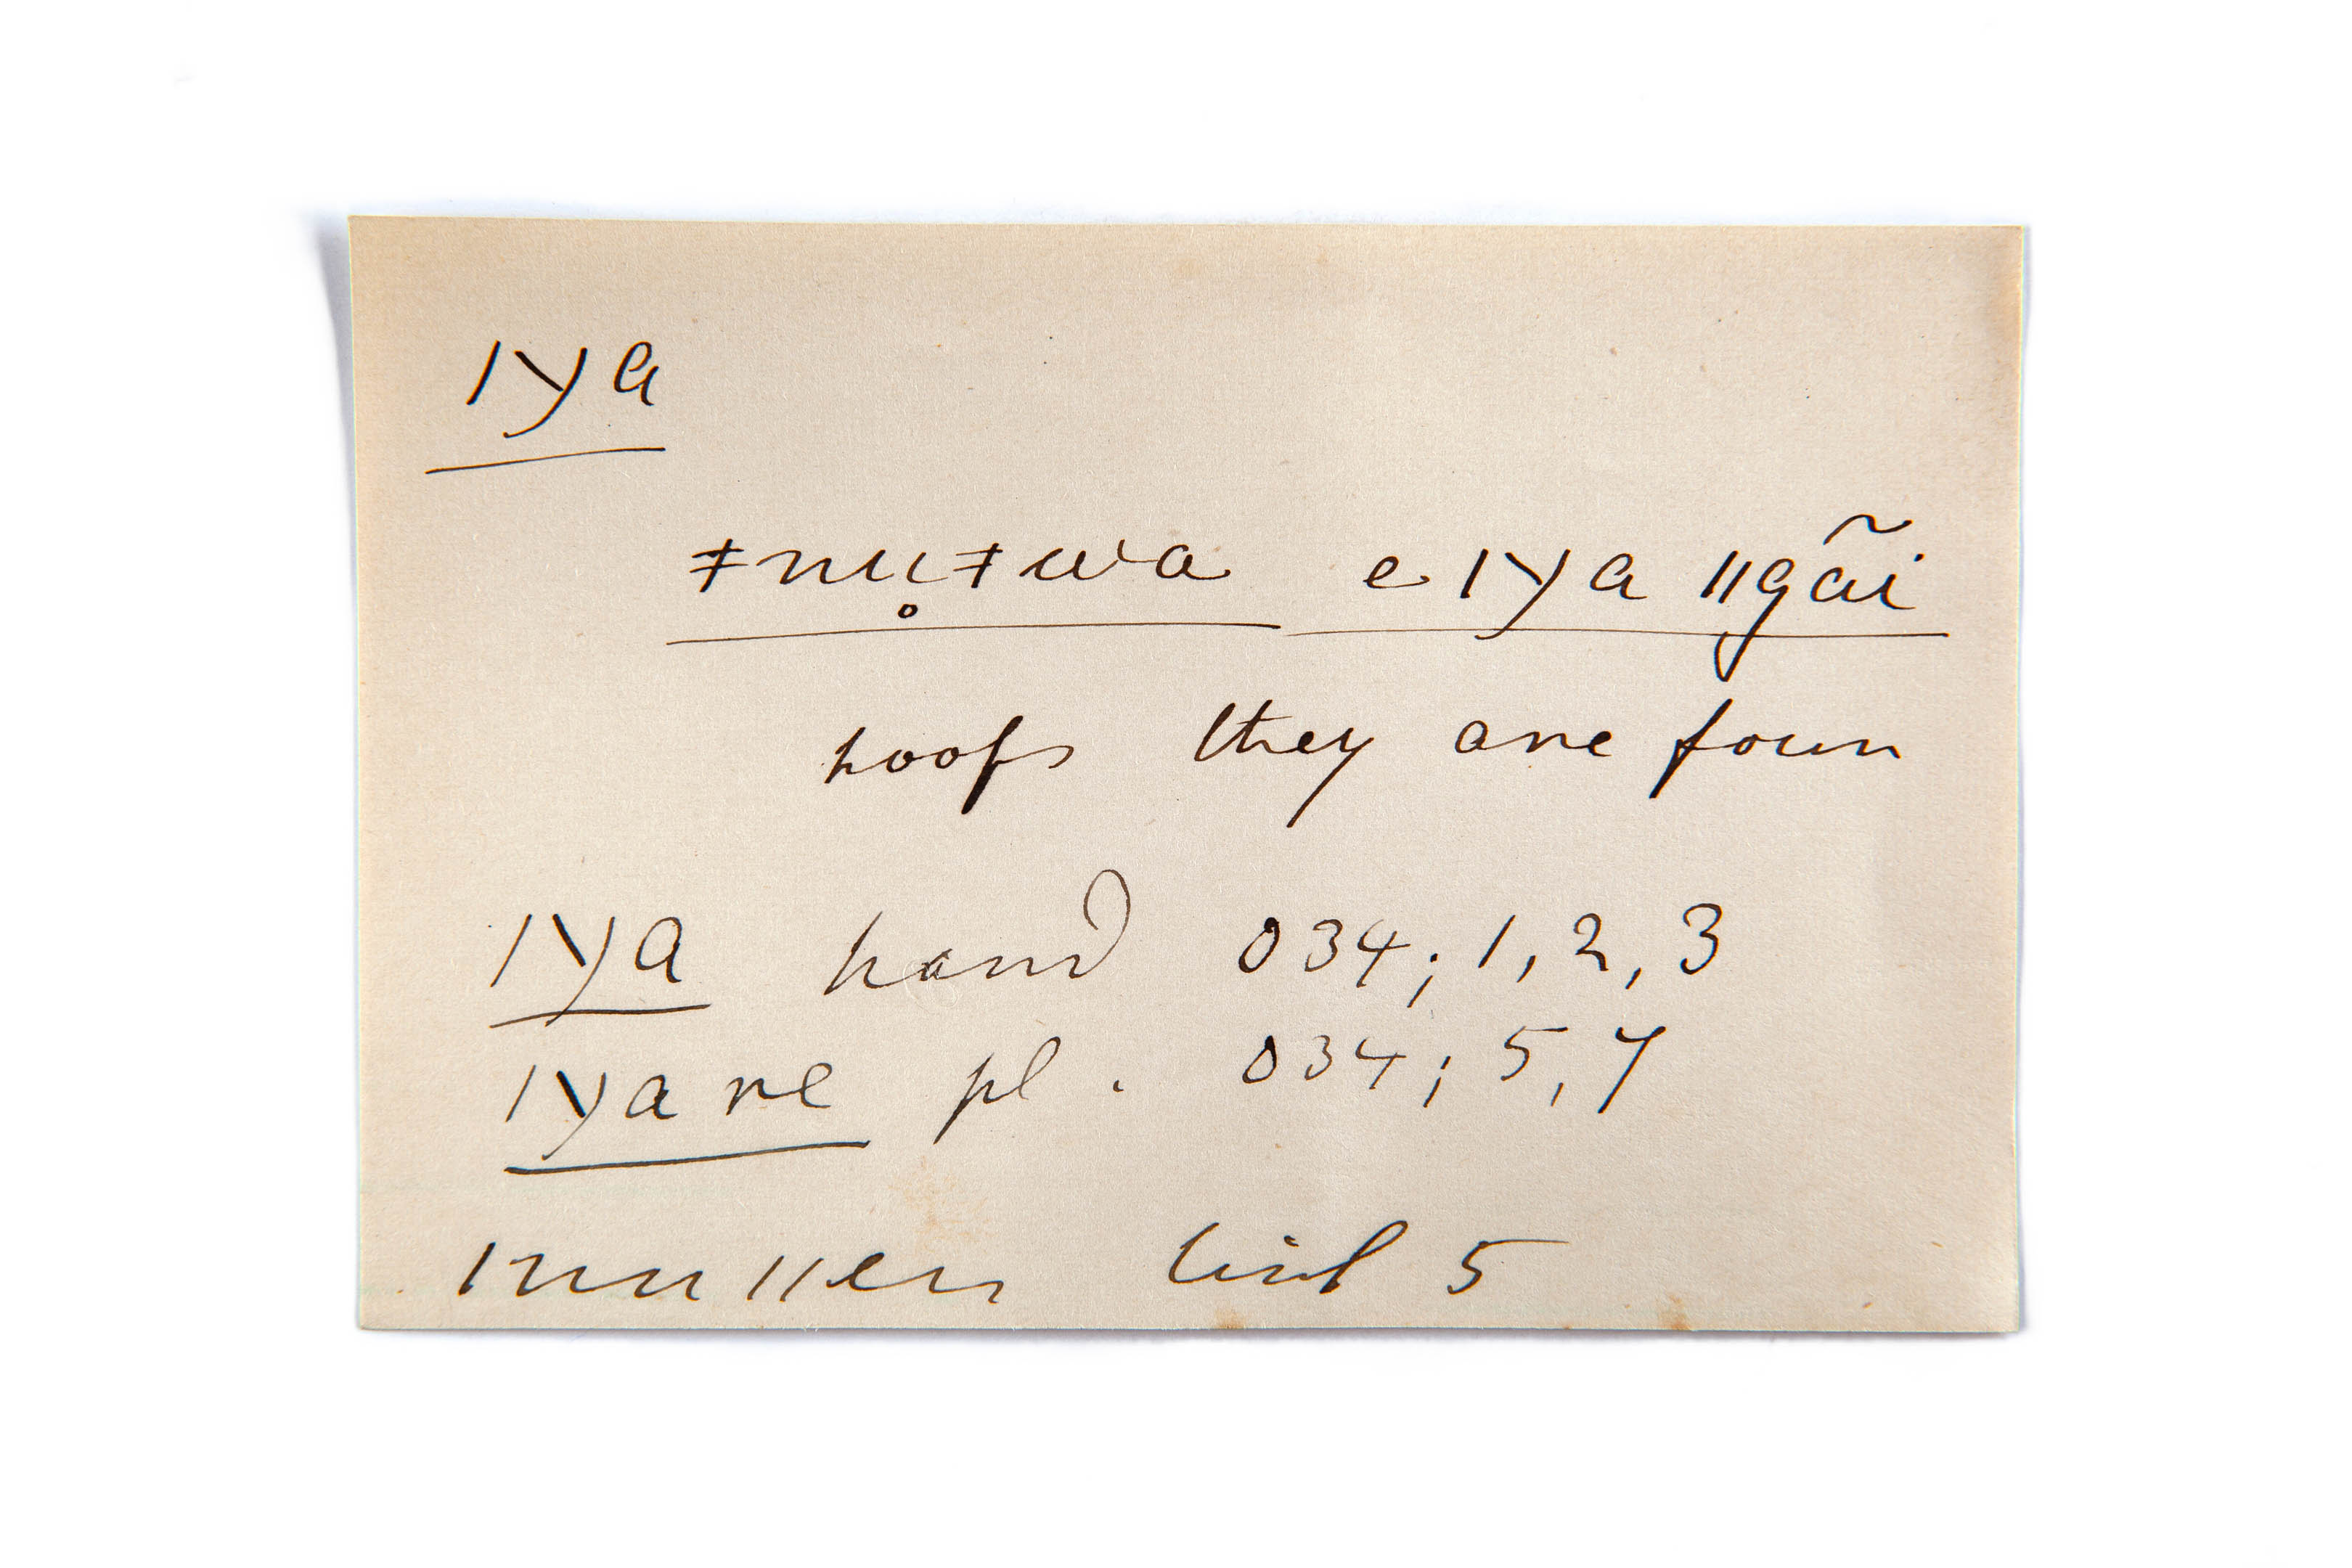 ǀya
ǂnu̥ǂwa e ǀya ǁgãi
hoofs they are four
ǀya hand 034; 1, 2, 3
ǀyare pl. 034; 5, 7
ǀnu ǁen list 5